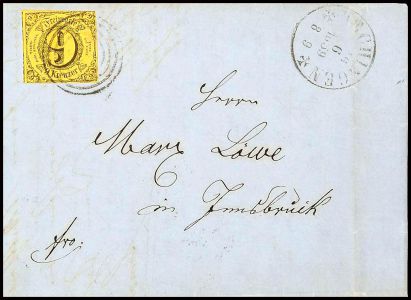 9
Kreuzer
HECHINGEN
Herrn
Marx Löwe
in Innsbruck
fro: